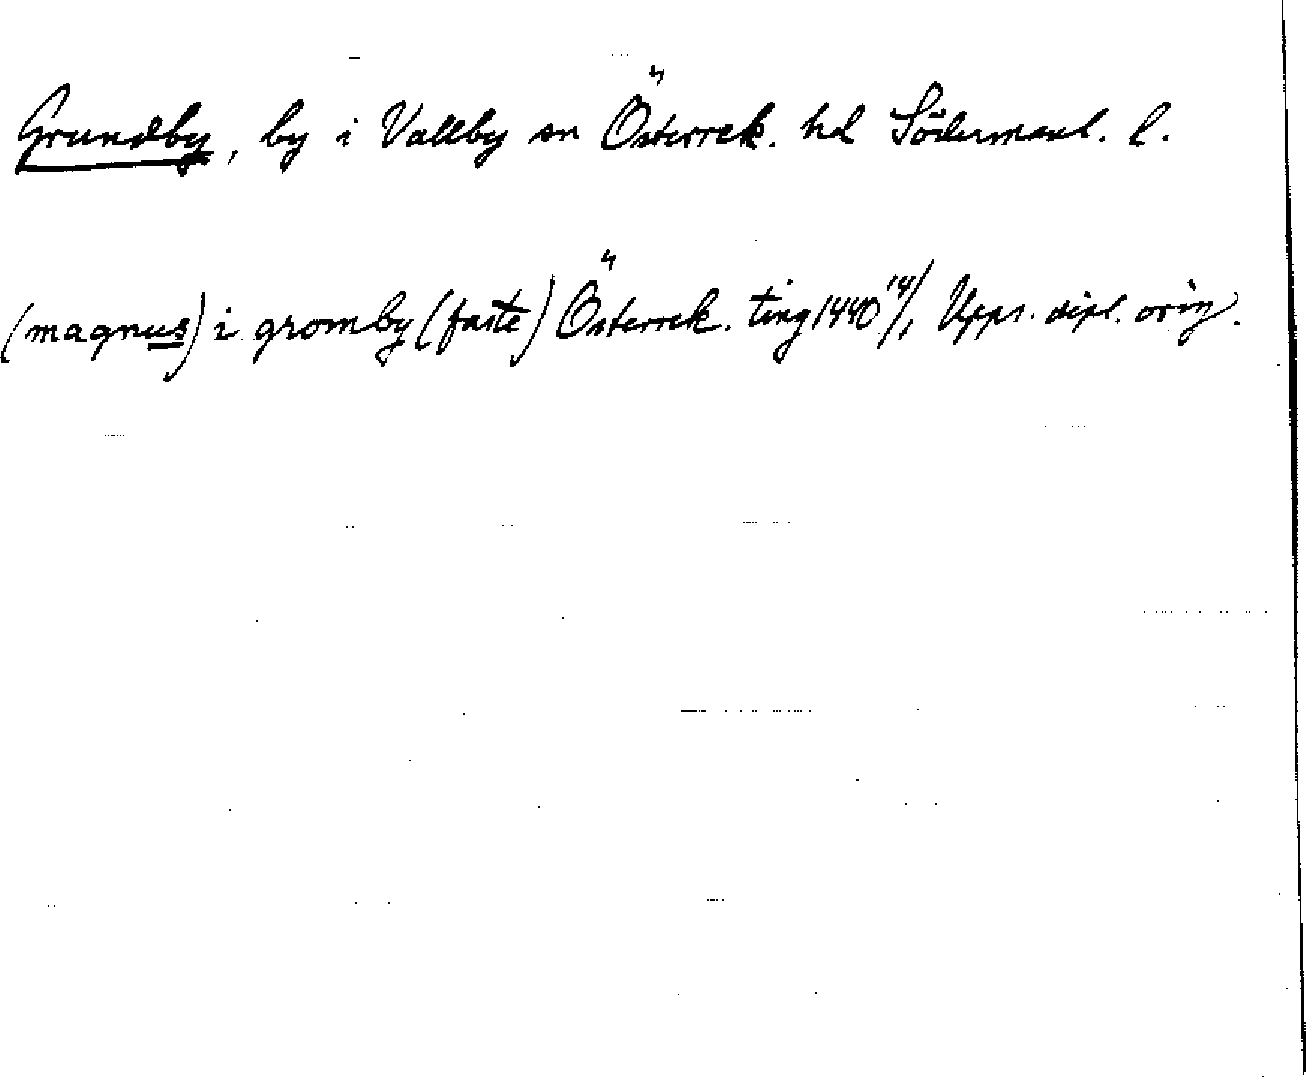 Grundby, by i Vallby sn Österrek. hd Södermanl. l.
(magnus) i gromby (faste) Österrek. ting 1440 Upps. dipl. orig.